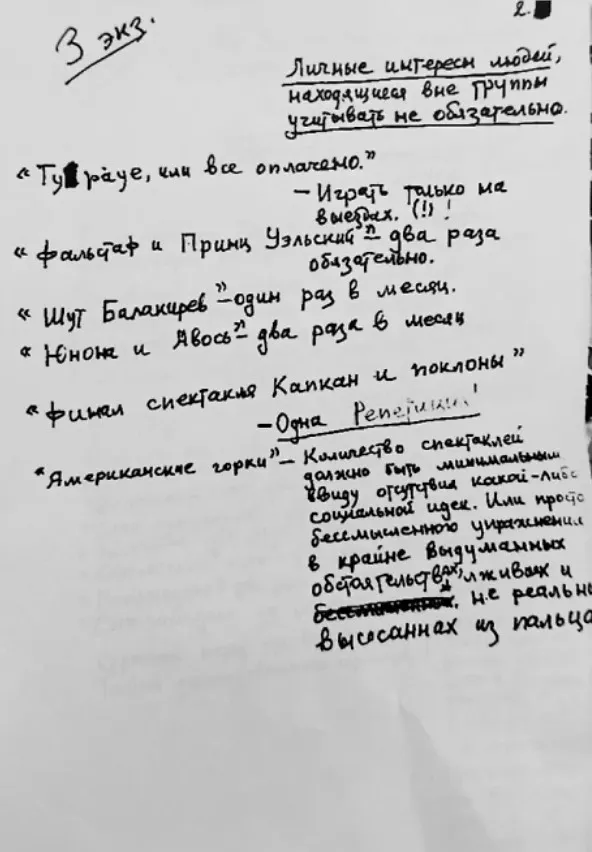 2.
3 экз.
Личные интересы людей,
находящиеся вне группы
учитывать не обязательно.
"Ту рауе, или все оплачено."
– Играть только на
выездах. (!) !
"Фальстаф и Принц Уэльский" – два раза
обязательно.
"Шут Балакирев" – один раз в месяц.
"Юнона и Авось" – два раза в месяц
"Финал спектакля Капкан и поклоны"
– Одна Репетиция!
"Американские горки" – Количество спектаклей
должно быть минимальным
ввиду отсутствия какой-либо
социальной идеи. Или просто
бессмысленного упражнения
в крайне выдуманных
обстоятельствах, лживых и
не реальны
высосаннах из пальца